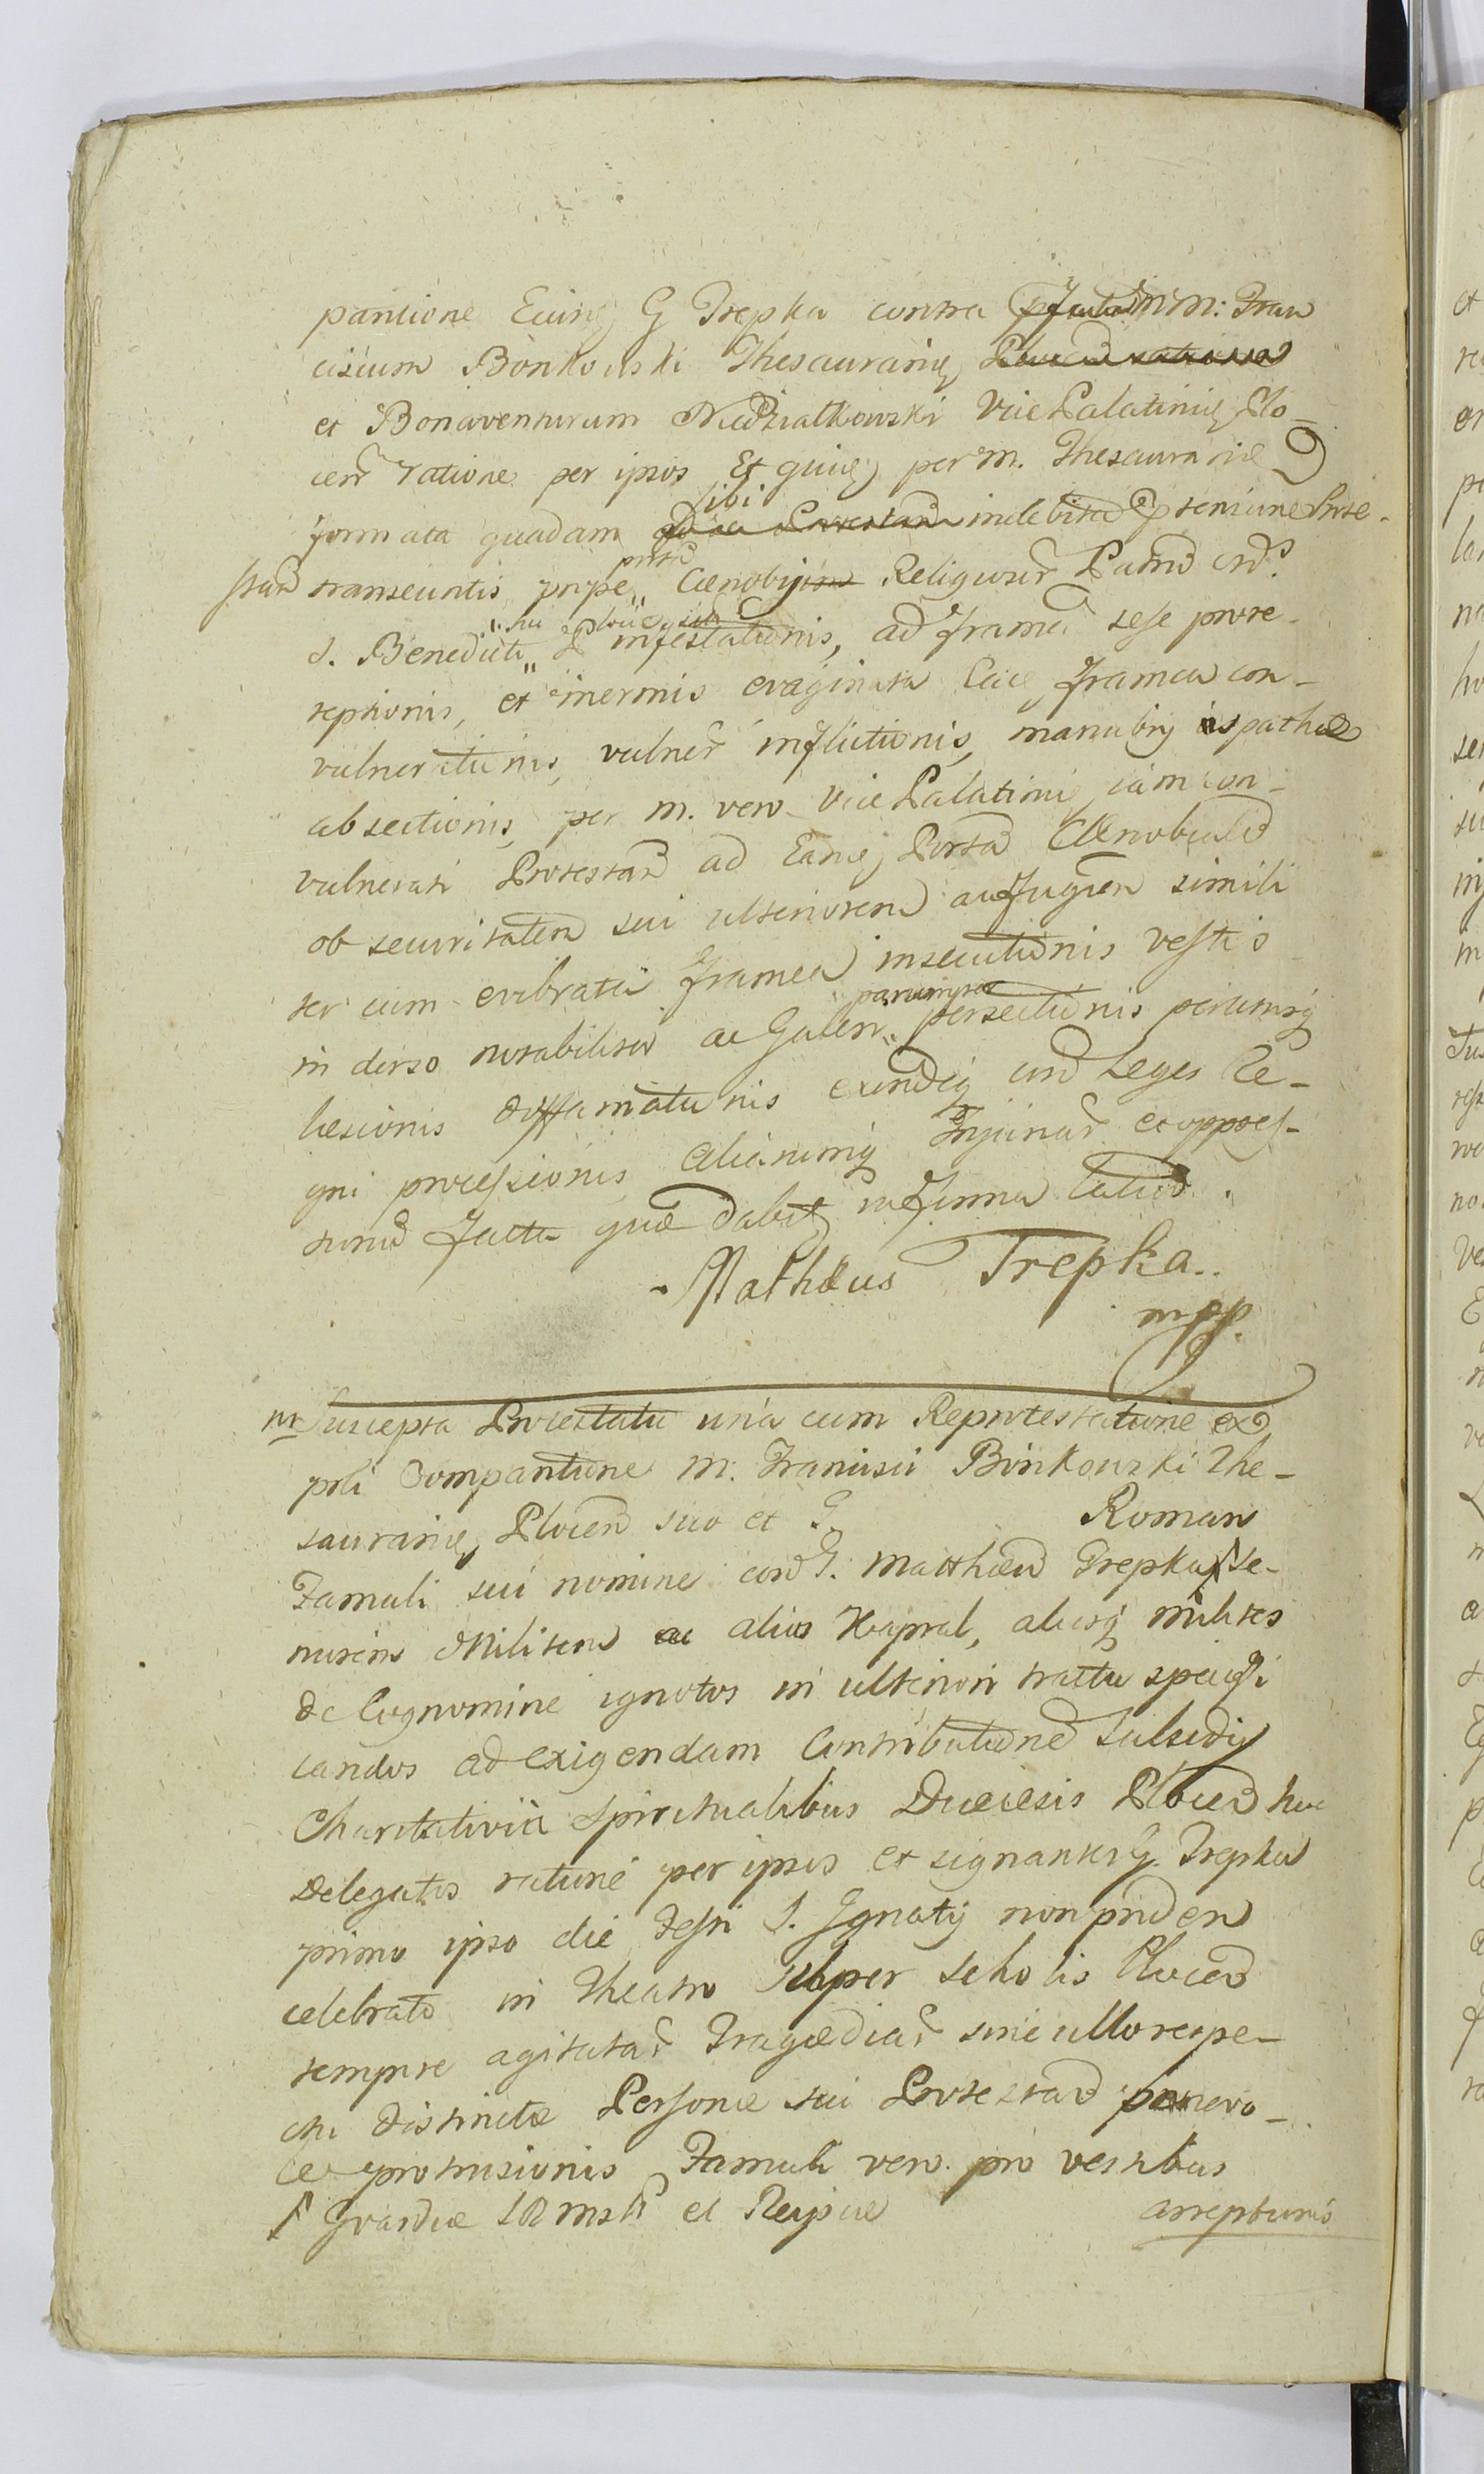 paritione Eiusq G Trepka contra MM: Fran
ciscum Bońkowski Thesaurariũ
et Bonaventuram Niedzialkowski Vice Palatinũ Plo-
cen ratione per ipsos Et quidẽ per M. Thesaurariũ
formata quadam sibi indebita prtensione Prote-
stan transeuntis prope portã Cœnobij Religiosor Patrũ Ord
S. Benedicti hic Plociæ sitã infestationis, ad frameã sese prore-
ptionis, et inermis evaginata framea con-
vulnerationis, vulner inflictionis, manubrij spathæ
absectionis, per M. vero Vice Palatinũ iam con-
vulnerati Protestan ad Eandẽ Portã Cœnobialẽ
ob securitatem sui ulteriorem aufugien simili
ter cum evibrata framea insecutionis vestis
in dorso notabiliter ac Galeri parumper persectionis
læsionis diffamationis exindeq con Leges Re-
gni processionis aliarumq Injuriar et oppres-
sionũ facta quæ dabit in forma latiori.
Mathæus Trepka
mpp.
Suscepta Protestatio una cum Reprotestatione ex
prli Comparitione M. Francisci Bońkowski The-
saurarij Plocen suo et G. Roman
Famuli sui nomine con G. Matthæũ Trepka Se-
niorem Militem ac alios Kapral, aliosq milites
de Cognomine ignotos in ulteriori tractu specifi
candos ad exigendam Contributionẽ Subsidij
Charitativi a Spiritualibus Diœcesis Plocen huc
Delegatos ratione per ipsos et signanter G. Trepka
primo ipso die Festi S. Ignatij non pridem
celebrato in Theatro super Scholis Plocen
tempore agitatar Tragœdiar sine ullo respe-
ctu distinctæ Personæ sui Protestan
protrusionis Famuli vero pro vestibus
Gvardiæ SRMsti et Reipcæ arreptionis